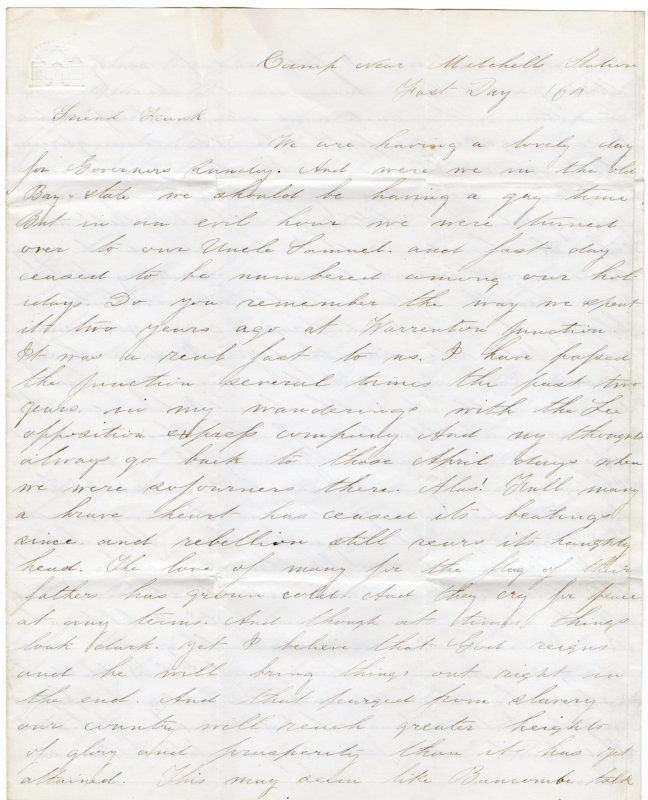 Camp near Mitchells Station
Fast Day 64
Friend Frank
We are having a lovely day
for Governors Sunday. And were we in the old
Bay-state we should be having a gay time
But in an evil hour we were turned
over to our Uncle Samuel. and fast day
ceased to be numbered among our hol
idays. Do you remember the way we spent
it two years ago at Warrenton Junction.
It was a real fast to us. I have passed
the junction several times the past two
years in my wanderings with the Lee
opposition express company. And my thoughts
always go back to those April days when
we were sojourners there. Alas! Full many
a brave heart has ceased its beatings
since and rebellion still rears its haughty
head. The love of many for the flag of their
fathers has grown cold And they cry for peace
at any terms. And though at times things
look dark. yet I believe that God reigns
and he will bring things out right in
the end. And that purged from slavery
our country will reach greater heights
of glory and prosperity than it has yet
attained. This may seem like Buncombe talk